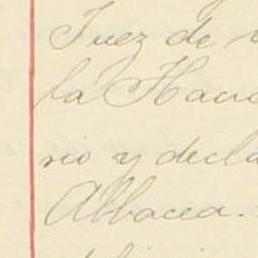 Juez de
la Haci
rio y decla
Albacea.